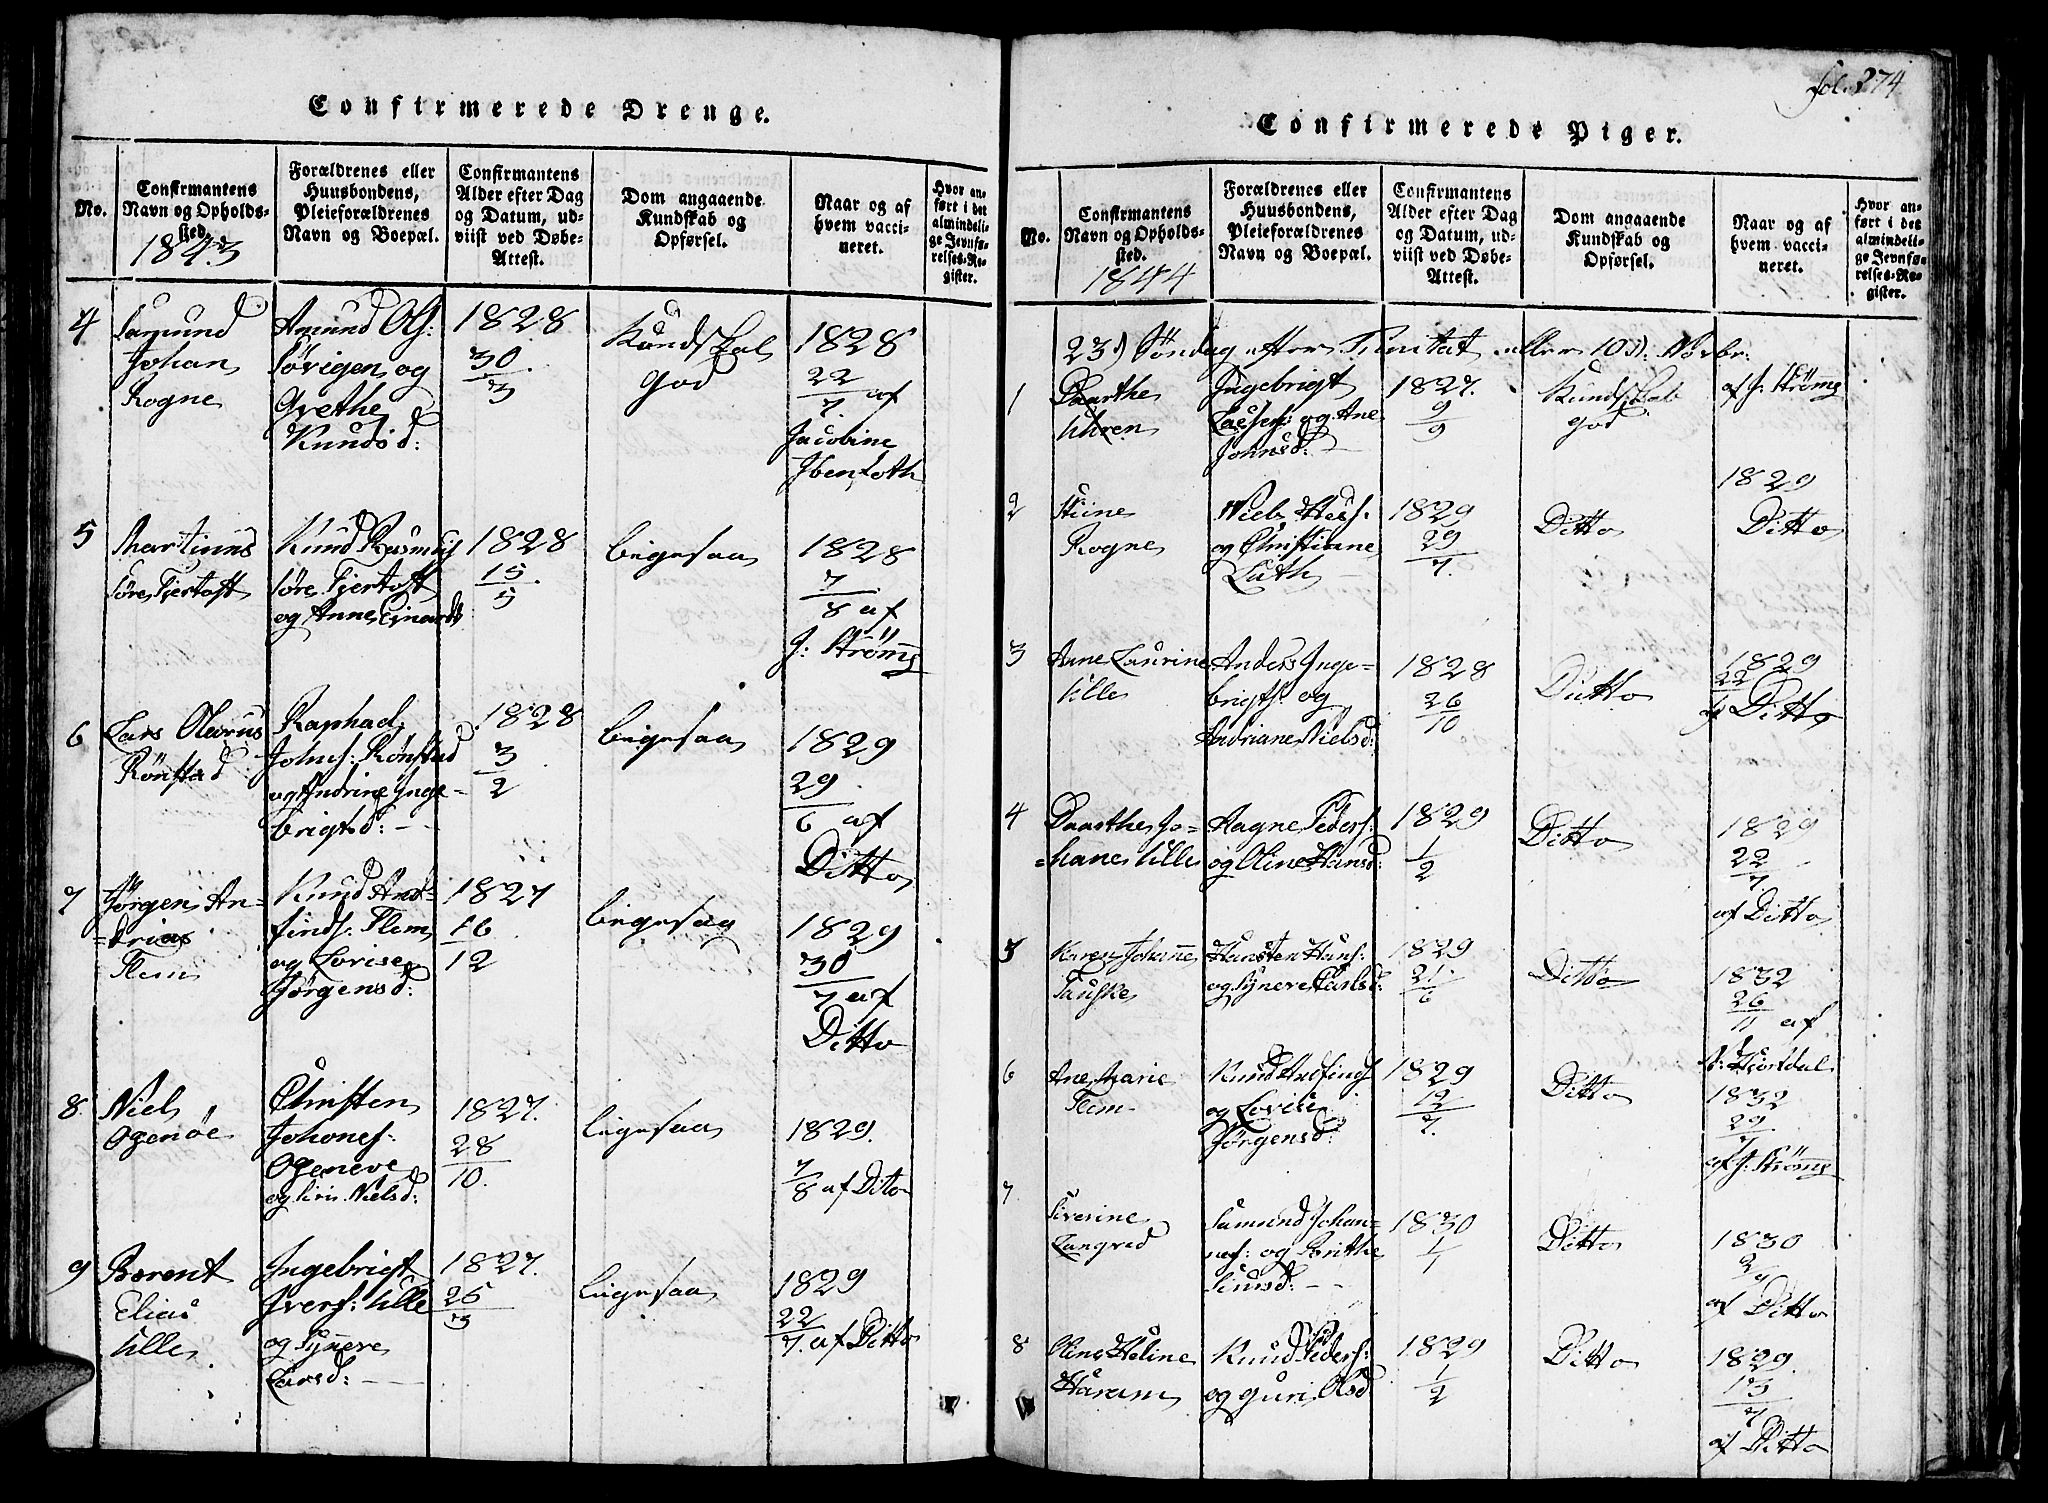 fol. 274
Confirmerede Drenge.
No.
Confirmantens
Navn og Opholds-
sted.
1843
Forældrenes eller
Huusbondens,
Pleieforældrenes
Navn og Boepæl.
Confirmantens
Alder efter Dag
og Datum, ud-
viist ved Døbe-
Attest.
Dom angaaende
Kundskab og
Opførsel.
Naar og af
hvem vacci-
neret.
Hvor an-
ført i det
almindeli-
ge Jevnfø-
relses-Re-
gister.
4
Samund
Johan
Rogne
Amund Ols:
Søvigen og
Grethe
Knudsd:
1828
30
3
Kundskab
god
1828
22
7. af
Jacobine
5
Martinus
Søre Fjertoft
Knud Rasmus
Søre Fjertoft
og Anne
1828
15
5
ligesaa
1828
7
8 af
J: Strøms
6
Lars Olaus
Rønstad
Johns: Rønstad
og Andrine Inge-
brigtsd:
1828
3
2
ligesaa
1829
29
6 af
Ditto
7
Jørgen An-
=drias
Flem
Knud And-
finds. Flem
og Lovise
Jørgensd:
1827
16
12
ligesaa
1829
30
7 af
Ditto
8.
Niels
Ogenöe
Christen
Johones:
Ogeneve
og Siri Nielsd:
1827.
28
10.
ligesaa
1829.
7
8 af Ditto
9
Berent
Elias
Ulle
Ingebrigt
Ivers: Ulle
og Synere
Larsd:
1827.
25
3
ligesaa
1829
22
7. af Ditto
Confirmerede Piger.
No.
Confirmantens
Navn og Opholds-
sted.
1844
Forældrenes eller
Huusbondens,
Pleieforældrenes
Navn og Boepæl.
Confirmantens
Alder efter Dag
og Datum, ud-
viist ved Døbe-
Attest.
Dom angaaende
Kundskab og
Opførsel.
Naar og af
hvem vacci-
neret.
Hvor an-
ført i det
almindeli-
ge Jevnfø-
relses-Re-
gister.
23d Søndag efter Trinitat. eller 10d: Novbr:
1
Daarthe
Uhren
Ingebrigt
Larsen og Ane
Johnsd:
1827.
9
9
Kundskab
god
af J: Strøms
1829
2
Stine
Rogne
Niels Hess:
og Christianne
Lath
1829
29
7.
Ditto
Ditto
3
Ane Laurine
Ulle
Anders Inge=
brigts. og
Andriane Nielsd:
1828
26
10
Ditto
1829
22
af Ditto
4
Daarthe Jo=
=hanes Ulle
Aagne Peders:
og Oline Hansd:
1829
1
2
Ditto
1829
22
7
af Ditto
5
Karen Johanne
Tauske
Karsten Hans:
og Synere Carlsd:
1829
21
6
Ditto
1832
26
11 af
6
Ane Marie
Flem
Knud Andfinds
og Lovise
Jørgensd:
1829
12
7.
Ditto
1832
29
af J: Strøms
7
Siverine
Langved
Samund Johan=
nes: og Brithe
1830
1
1
Ditto
1830
af Ditto
8
Oline Heline
Haram
Knud Peders:
og Guri Olsd
1829
1
2
Ditto
1829.
13
7
af Ditto